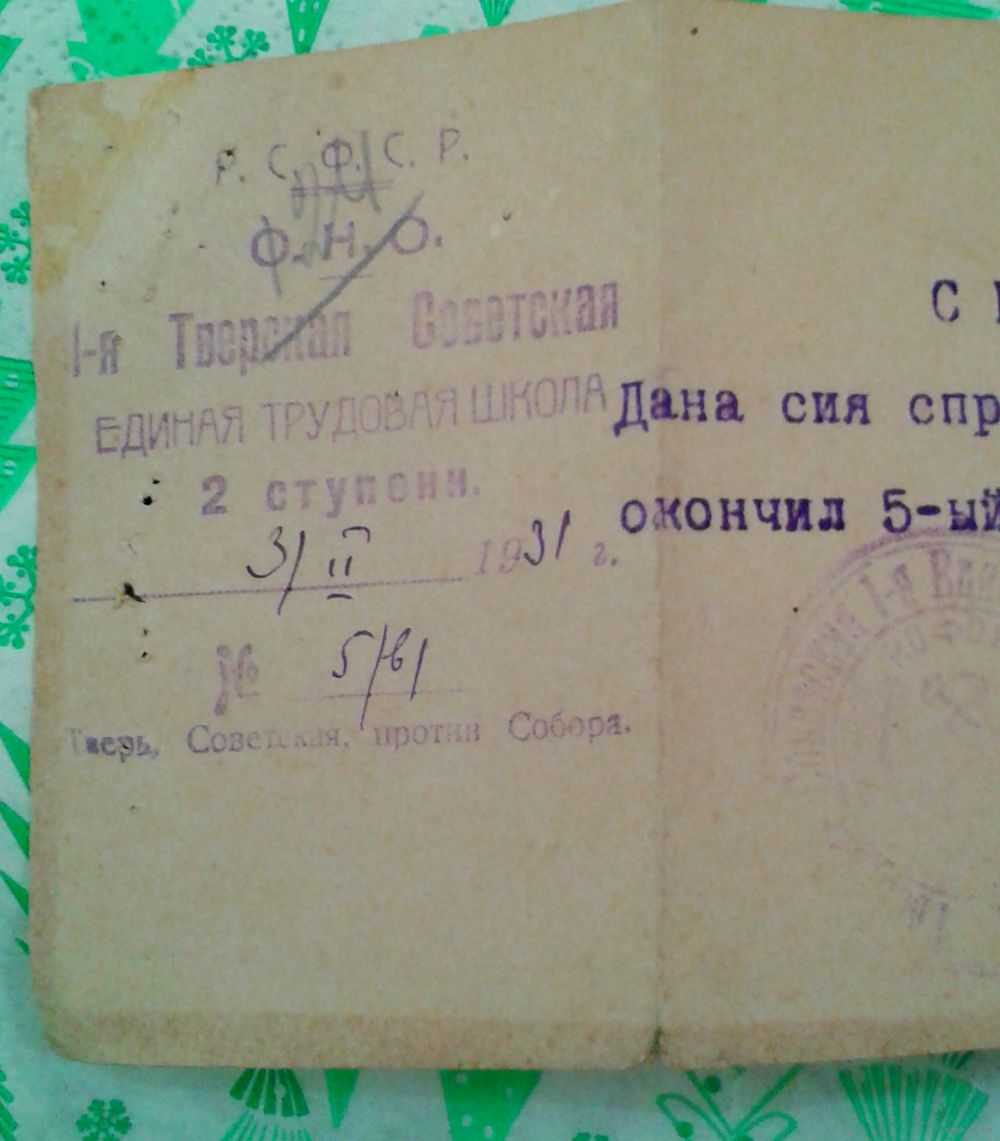 Р. С. Ф. С. Р.
Ф. Н. О.
1-я Тверская Советская
ЕДИНАЯ ТРУДОВАЯ ШКОЛА
2 ступени.
3/II 1931 г.
№ 5/в/
Тверь, Советская, против Собора.
С
Дана сия спр
окончил 5-ый
1-я